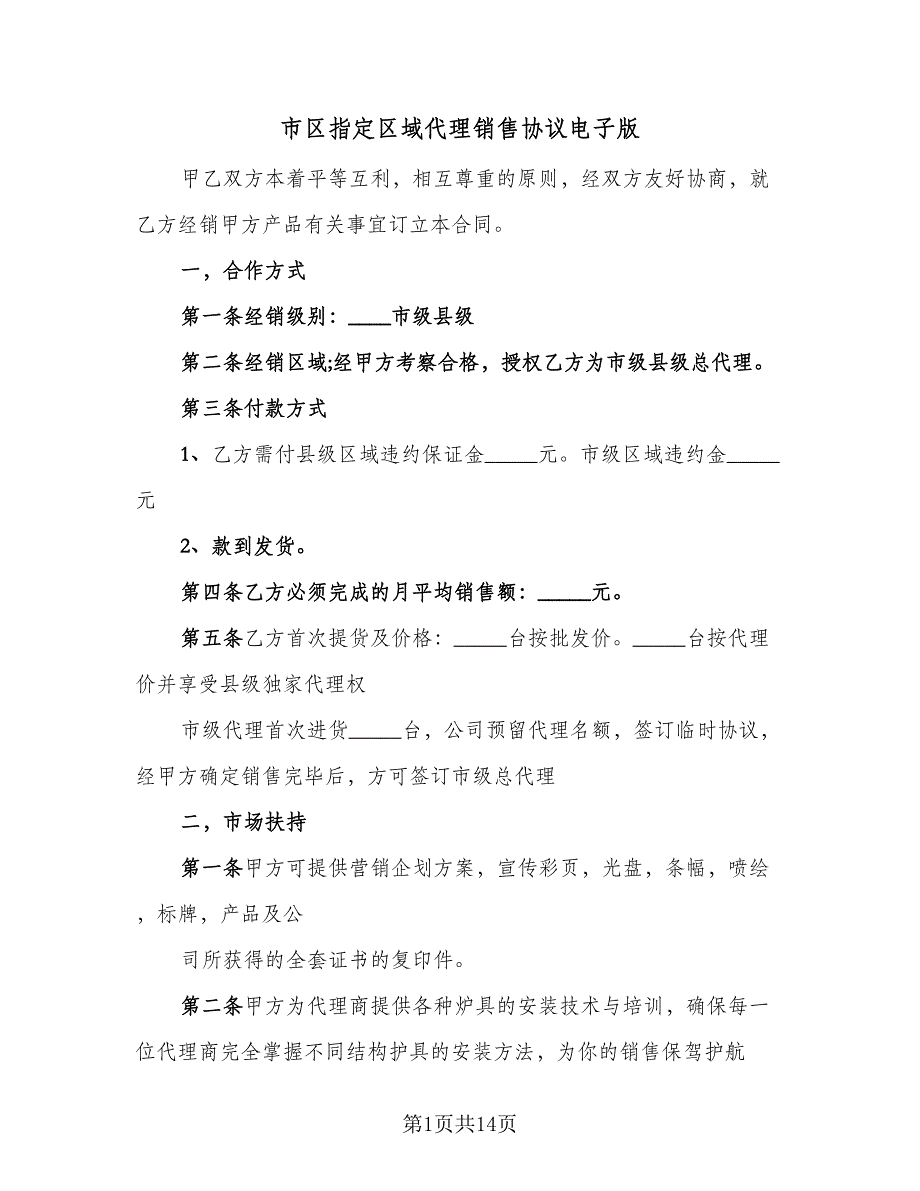 市区指定区域代理销售协议电子版
甲乙双方本着平等互利，相互尊重的原则，经双方友好协商，就
乙方经销甲方产品有关事宜订立本合同。
一，合作方式
第一条经销级别：____市级县级
第二条经销区域;经甲方考察合格，授权乙方为市级县级总代理。
第三条付款方式
1、乙方需付县级区域违约保证金_____元。市级区域违约金_____
元
2、款到发货。
第四条乙方必须完成的月平均销售额：_____元。
第五条乙方首次提货及价格：_____台按批发价。_____台按代理
价并享受县级独家代理权
市级代理首次进货_____台，公司预留代理名额，签订临时协议，
经甲方确定销售完毕后，方可签订市级总代理
二，市场扶持
第一条甲方可提供营销企划方案，宣传彩页，光盘，条幅，喷绘
，标牌，产品及公
司所获得的全套证书的复印件。
第二条甲方为代理商提供各种炉具的安装技术与培训，确保每一
位代理商完全掌握不同结构护具的安装方法，为你的销售保驾护航
第1页共14页